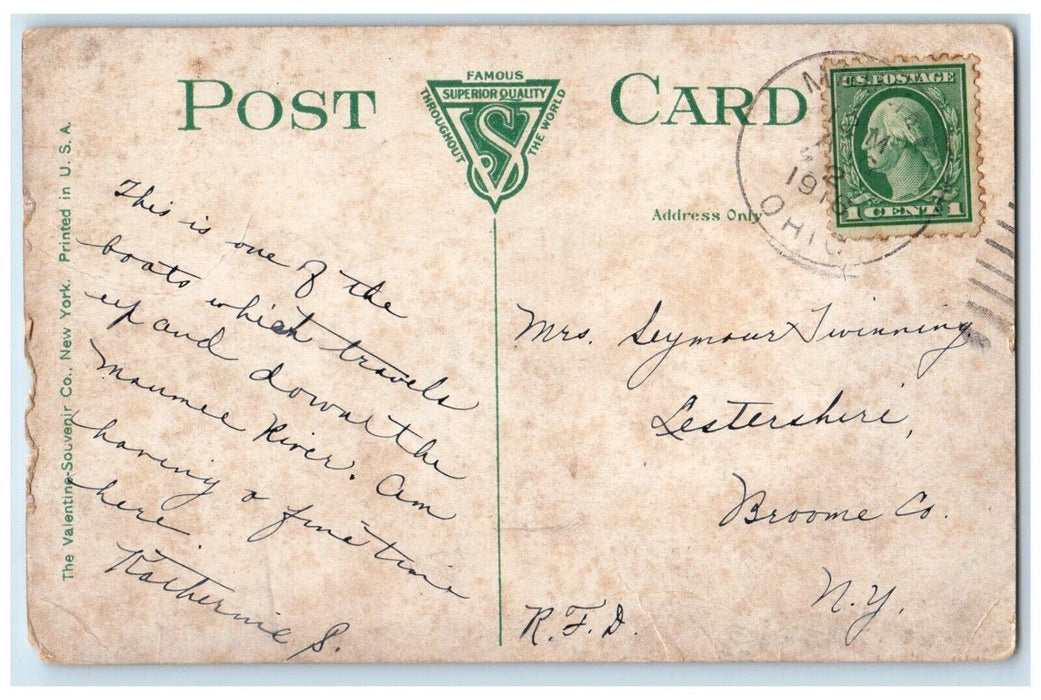 POST CARD
FAMOUS
SUPERIOR QUALITY
THROUGHOUT
THE WORLD
VS
U.S. POSTAGE
1 CENT 1
M
2
191
OHIO
Address Only
The Valentine-Souvenir Co., New York. Printed in U. S. A.
This is one of the
boats which travels
up and down the
Maumee River. Am
having a fine time
here.
Katherine S.
Mrs. Seymour Twinning,
Lestershire,
Broome Co.
N.Y.
R.F.D.